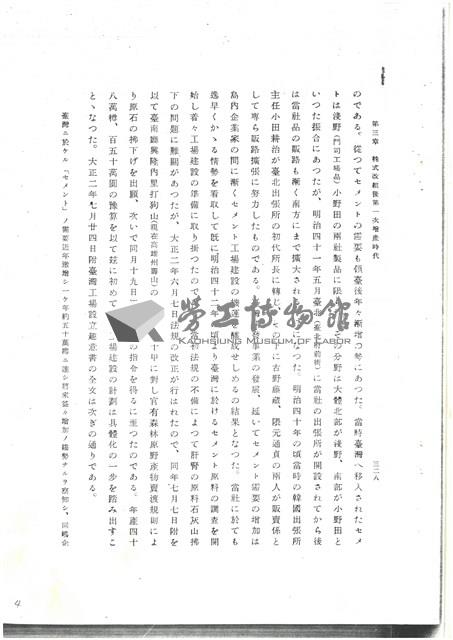 第三章　株式改組後第一次增産時代
三二八
のである。從つてセメントの需要も領臺後年々漸增の勢にあつた。當時臺灣へ移入されたセメ
ントは淺野(門司工場品)小野田の兩社製品に限
分野は大體北部が淺野、南部が小野田と
いつた振合にあつたが、明治四十一年五月臺北(臺北府前街)に當社の出張所が開設されてから後
は當社品の販路も漸く南方にまで擴大され
なつた。明治四十年の頃當時の韓國出張所
主任小田耕治が臺北出張所の初代所長に轉じ
の下に古野藤藏、隈元通貞の兩人が販賣係と
して專ら販路擴張に努力したものである。
事業の發展、延いてセメント需要の增加は
島内企業家の間に漸くセメント工場建設の機運を釀成せしめるの結果となつた。當社に於ても
逸早くかゝる情勢を看取して既に明治四十二年
頃より臺灣に於けるセメント原料の調査を開
始し着々工場建設の準備に取り掛つたので
當初法規の不備によつて肝腎の原料石灰山拂
下の問題に難關があつたが、大正二年六月七日法規の改正が行はれたので、同年七月七日附を
以て臺南廳興隆内里打狗山(現在高雄州壽山)の
十甲に對し官有森林原野產物賣渡規則によ
り原石の拂下げを出願、次いで同月十九日
の指令を得るに至つたのである。年產四十
八萬樽、百五十萬圓の豫算を以て玆に初めて
工場建設の計畫は具體化の一步を踏み出すこ
とゝなつた。大正二年七月廿四日附臺灣工場設立趣意書の全文は次ぎの通りである。
臺灣ニ於ケル「セメント」ノ需要近年激增シ一ケ年約五十萬樽ニ達シ將來益々增加ノ趨勢ナルヲ察知シ、同嶋企
勞工博物館
KAOHSIUNG MUSEUM OF LABOR
4